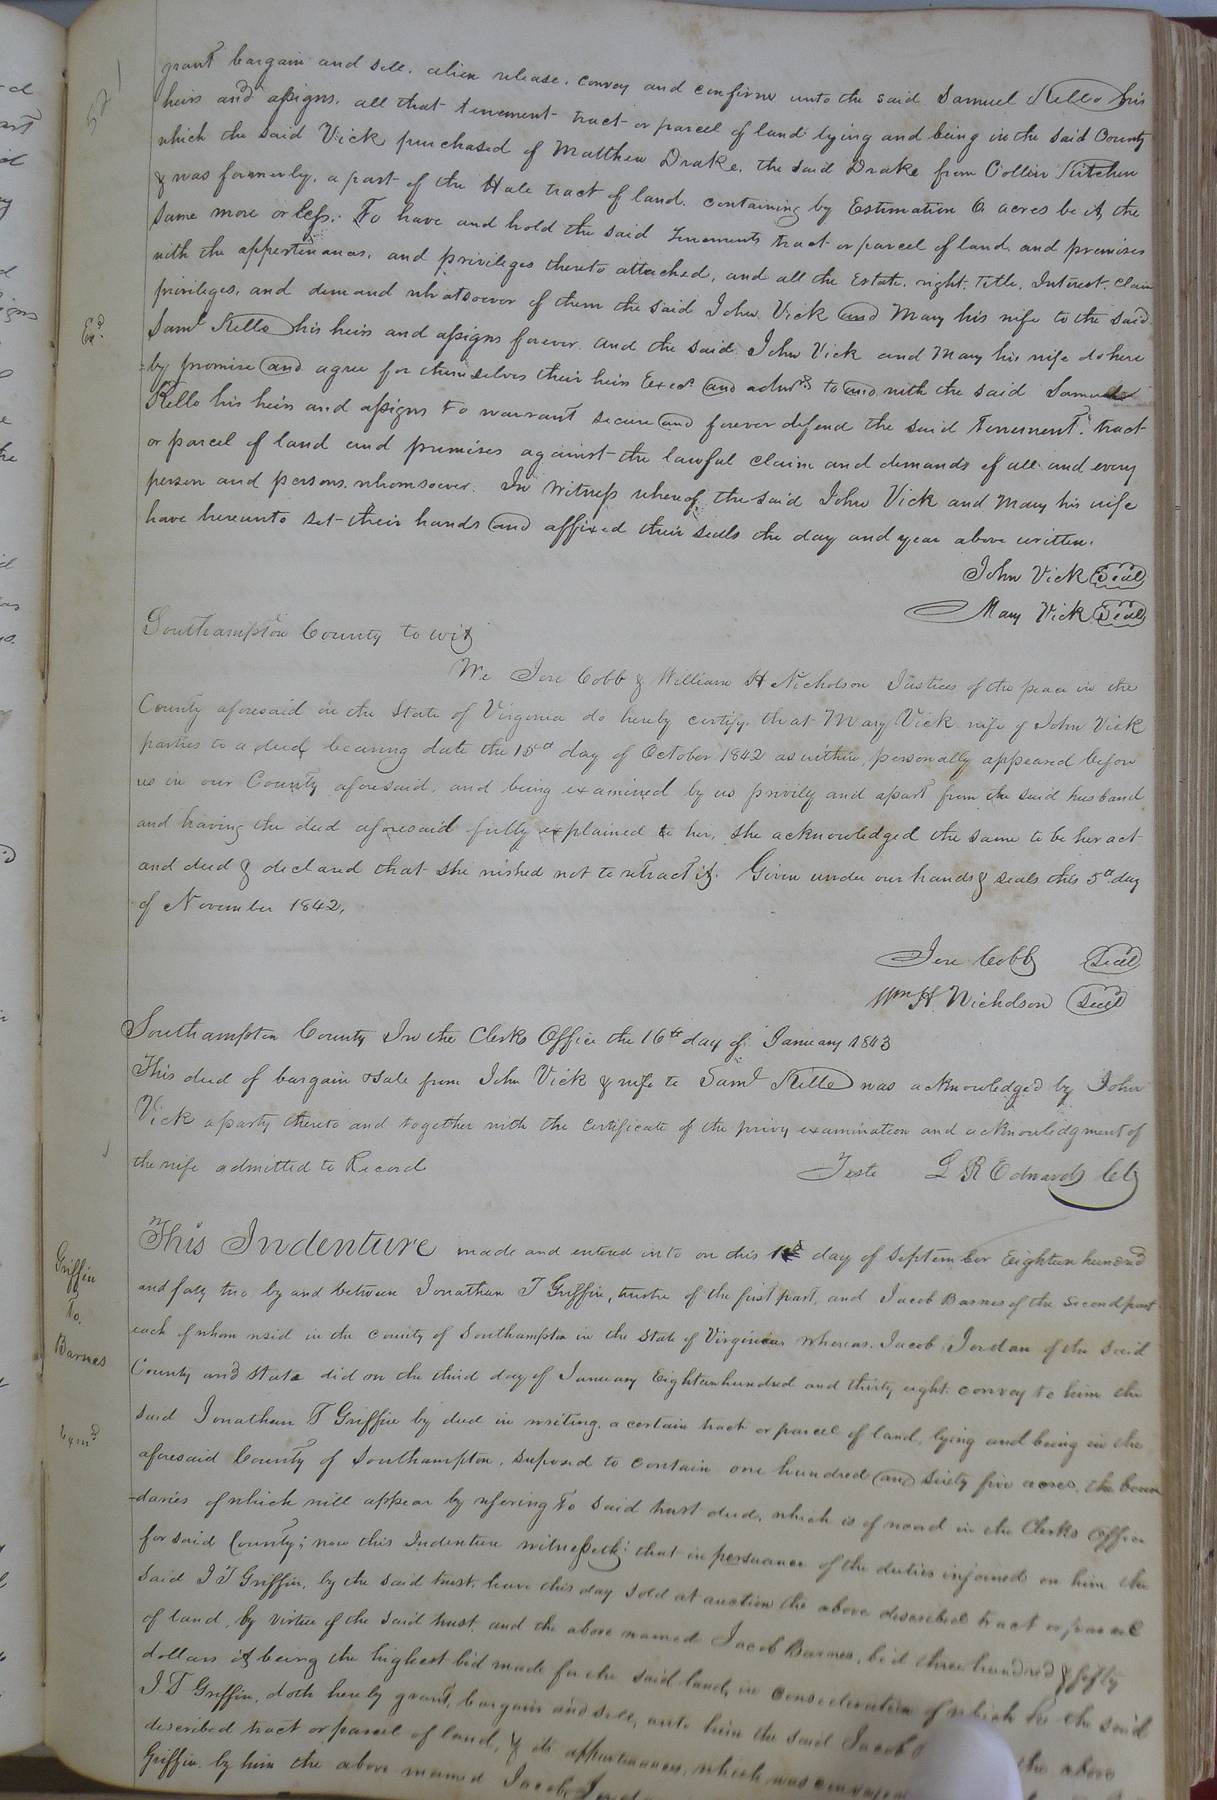 521
grant bargain and sell, alien release, convey and confirm unto the said Samuel Kello his
heirs and assigns, all that tenement tract or parcel of land lying and being in the said County
which the said Vick purchased of Matthew Drake, the said Drake from Collin Kitchen
& was formerly, a part of the Hale tract of land, containing by Estimation 6 acres be it, the
same more or less: To have and hold the said Tenements tract or parcel of land and premises
with the appertinances, and privileges thereto attached, and all the Estate, right, Title, Interest, Claim
privileges, and demand whatsoever of them the said John Vick and Mary his wife to the said
Exd.
Saml Kello his heirs and assigns forever. and the said John Vick and Mary his wife do here
=by promise and agree for themselves their heirs Execs and admrs to and with the said Samuel
Kello his heirs and assigns to warrant secure and forever defend the said tenement, tract
or parcel of land and premises against the lawful claim and demands of all and every
person and persons whomsoever. In witness whereof, the said John Vick and Mary his wife
have hereunto set their hands and affixed their seals the day and year above written.
John Vick Seal
Mary Vick Seal
Southampton County to wit
We Jere Cobb & William H Nicholson Justices of the peace in the
County aforesaid in the State of Virginia do hereby certify, that Mary Vick wife of John Vick
parties to a deed bearing date the 15th day of October 1842 as within, personally appeared before
us in our County aforesaid, and being examined by us privily and apart from the said husband
and having the deed aforesaid fully explained to her, she acknowledged the same to be her act
and deed & declared that she wished not to retract it. Given under our hands & seals this 5th day
of November 1842.
Jere Cobb Seal
Wm H. Nicholson Seal
Southampton County In the Clerks Office the 16th day of January 1843
This deed of bargain & sale from John Vick & wife to Saml Kello was acknowledged by John
Vick a party thereto and together with the certificate of the privy examination and acknowledgment of
the wife admitted to Record
Teste L R Edwards Clk
Griffin
To.
Barnes
Exmd
This Indenture made and entered into on this day of September Eighteen hundred
and forty two, by and between Jonathan T Griffin, trustee of the first part, and Jacob Barnes of the second part
each of whom resid in the county of Southampton in the State of Virginia, whereas, Jacob Jordan of the said
County and State did on the third day of January Eighteen hundred and thirty eight convey to him the
said Jonathan T Griffin by deed in writing, a certain tract or parcel of land, lying and being in the
aforesaid County of Southampton, suposed to contain one hundred and sixty five acres, the boun
-daries of which will appear by refering to said trust deed, which is of record in the Clerks Office
for said County; now this Indenture witnesseth: that in persuance of the duties injoined on him the
said J T Griffin, by the said trust, have this day sold at auction the above described tract or parcel
of land, by virtue of the said trust, and the above named Jacob Barnes, bid three hundred & fifty
dollars it being the highest bid made for the said land, in consideration of which he the said
J T Griffin, doth hereby grant, bargain and sell, unto him the said Jacob the above
described tract or parcel of land, & its appurtenances, which was conveyed
Griffin by him the above named Jacob Jordan